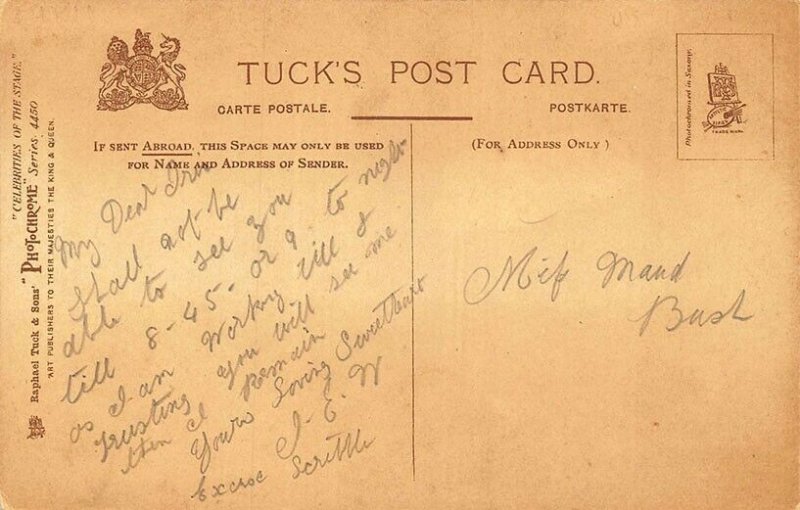 TUCK'S POST CARD.
CARTE POSTALE.
POSTKARTE.
IF SENT ABROAD, THIS SPACE MAY ONLY BE USED
FOR NAME AND ADDRESS OF SENDER.
(FOR ADDRESS ONLY)
"CELEBRITIES OF THE STAGE."
Raphael Tuck & Sons' "PHOTOCHROME" Series. 4450
ART PUBLISHERS TO THEIR MAJESTIES THE KING & QUEEN.
Photochromed in Saxony.
TRADE MARK.
My Dear
Shall not be
able to see you
till 8-45- or 9 to night
as I am working till 8
trusting you will see me
then I Remain
Yours Loving Sweetheart
J. E. W
Excuse Scribble
Miss Maud
Bush